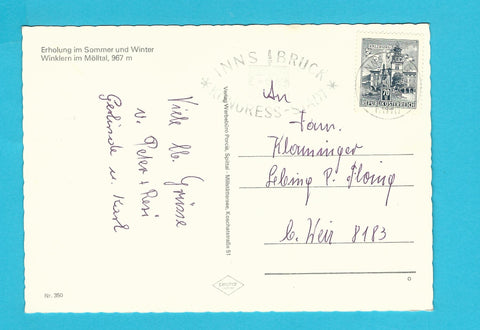 Erholung im Sommer und Winter
Winklern im Mölltal, 967 m
Viele lb. Grüsse
v. Peter + Resi
Gerlinde u. Kurt
Nr. 350
Verlag Werbebüro Porcia, Spittal - Millstättersee, Koschatstraße 51
INNSBRUCK
KONGRESS-STADT
REPUBLIK ÖSTERREICH
An
Fam.
Klamminger
Lebing P. Floing
b. Weiz 8183